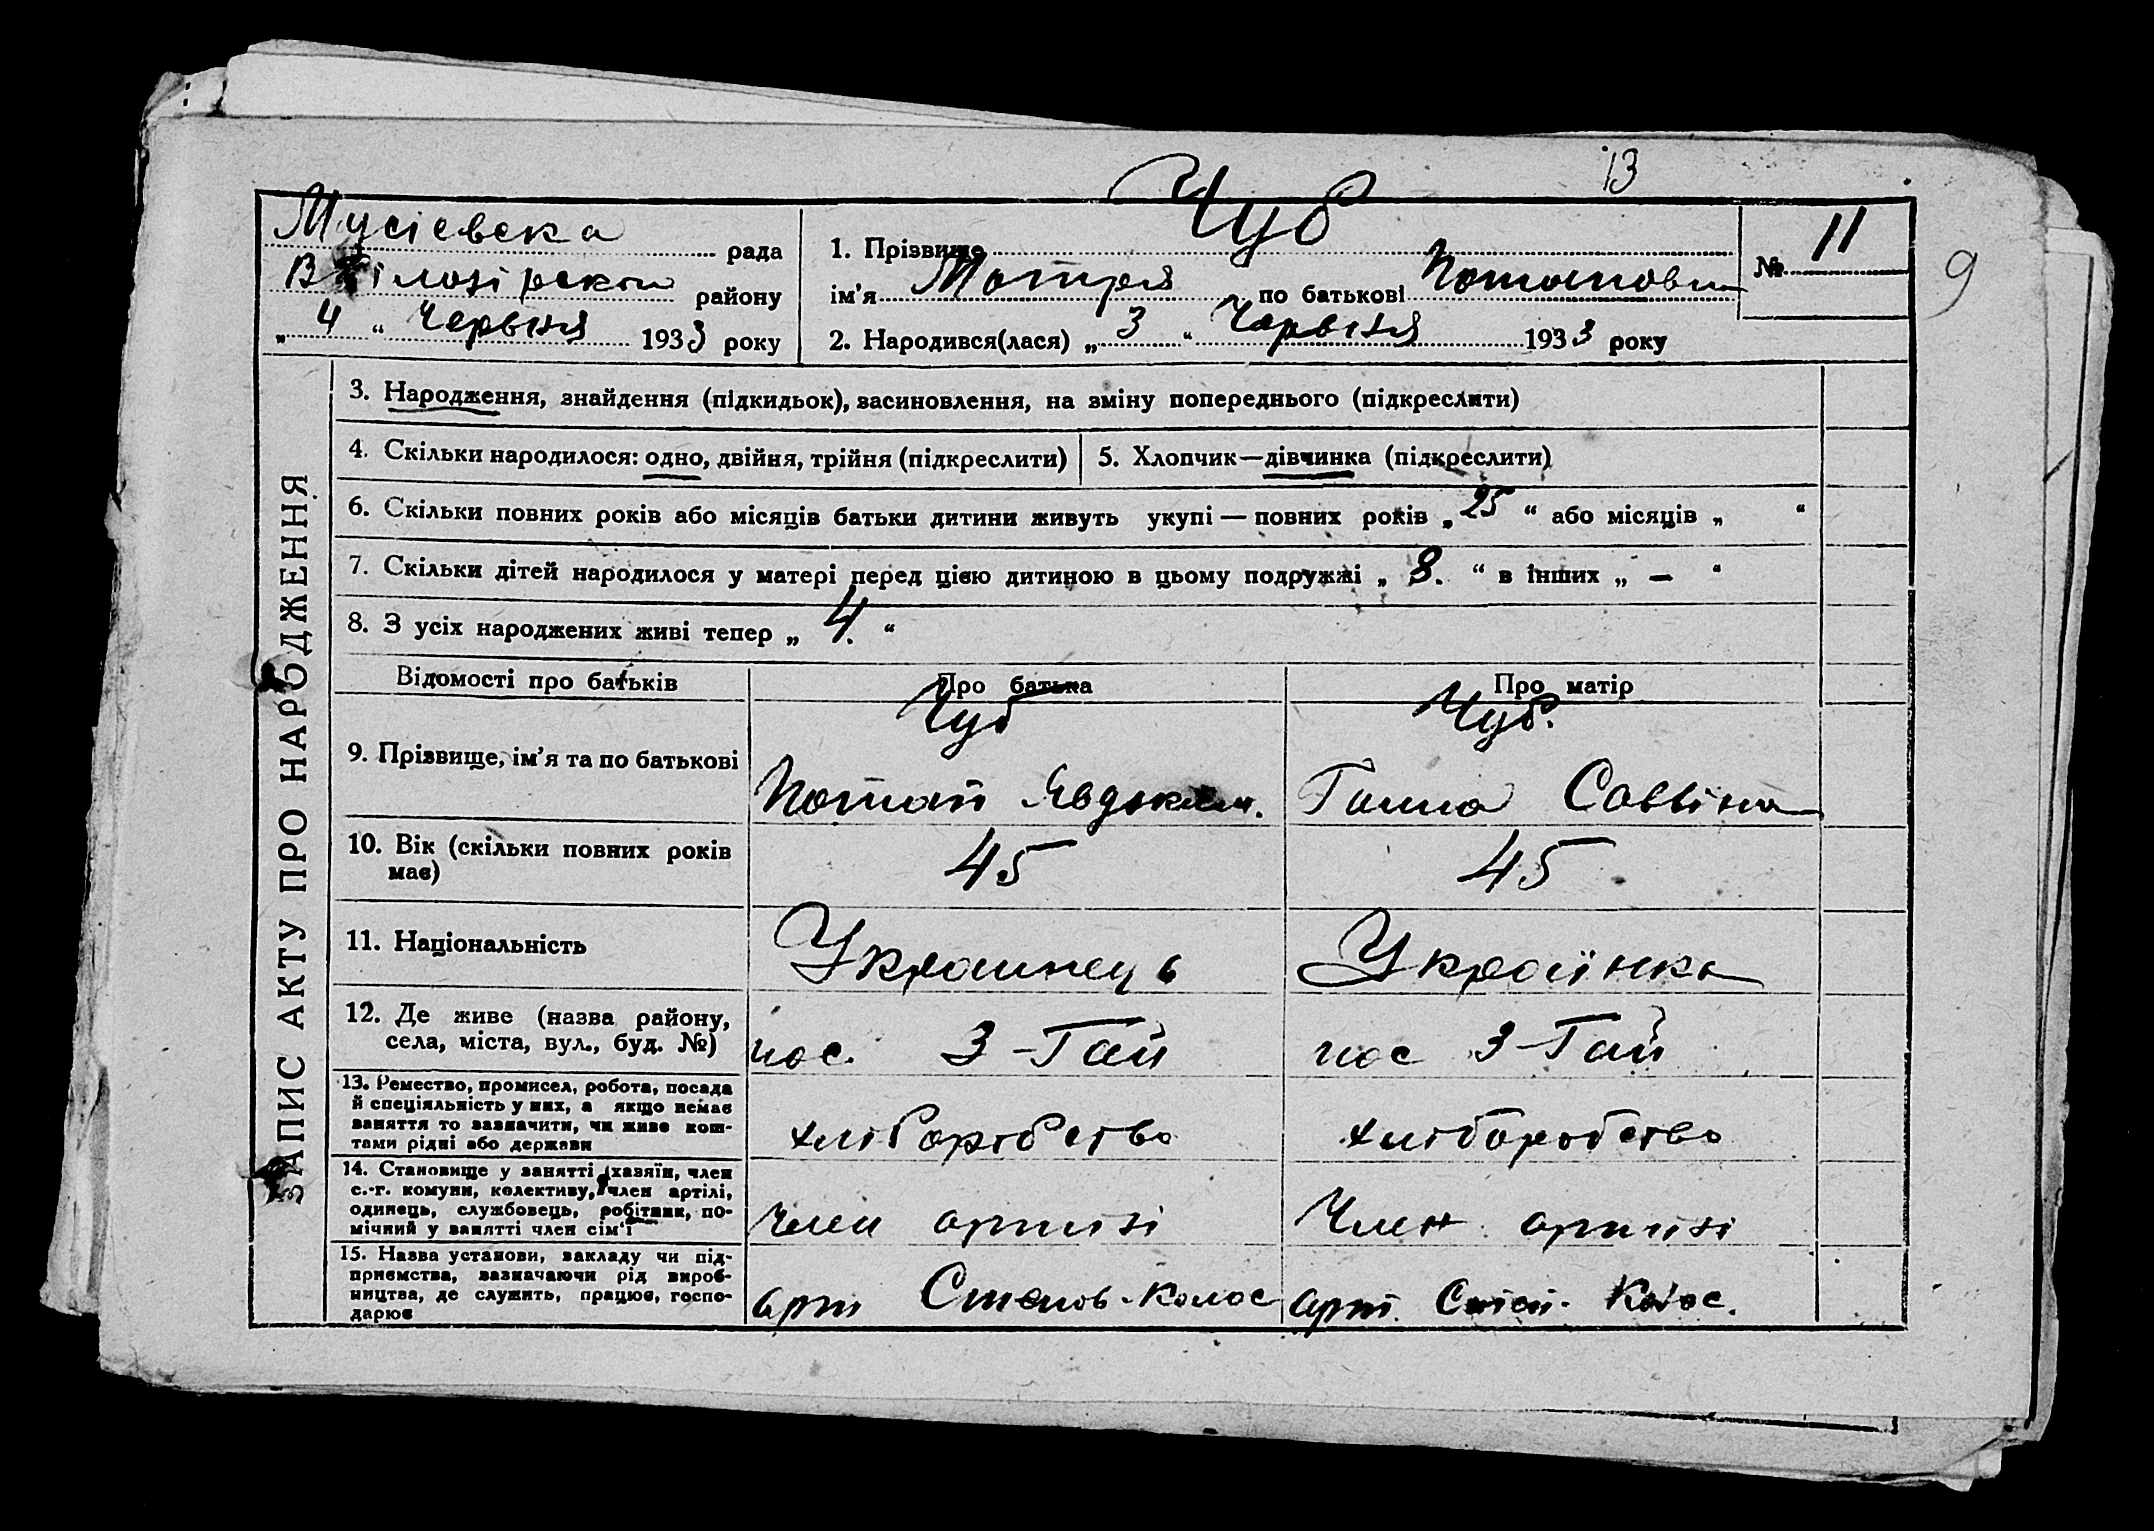 13
Мусіевска рада
Білозірского району
„ 4 “ Червня 1933 року
1. Прізвище Чуб
ім’я Мотря по батькові Потаповна
2. Народився(лася) „ 3 “ Червня 1933 року
№ 11
9
ЗАПИС АКТУ ПРО НАРОДЖЕННЯ
3. Народження, знайдення (підкидьок), засиновлення, на зміну попереднього (підкреслити)
4. Скільки народилося: одно, двійня, трійня (підкреслити)
5. Хлопчик—дівчинка (підкреслити)
6. Скільки повних років або місяців батьки дитини живуть укупі — повних років „ 25 “ або місяців „ “
7. Скільки дітей народилося у матері перед цією дитиною в цьому подружжі „ 8. “ в інших „ — “
8. З усіх народжених живі тепер „ 4. “
Відомості про батьків
Про батька
Про матір
9. Прізвище, ім’я та по батькові
Чуб
Потап
Чуб.
Ганна Саввіна
10. Вік (скільки повних років
має)
45
45
11. Національність
Украинець
Українка
12. Де живе (назва району,
села, міста, вул., буд. №)
пос. З-Гай
пос З-Гай
13. Ремество, промисел, робота, посада
й спеціяльність у них, а якщо немає
заняття то зазначити, чи живе кош-
тами рідні або держави
хліборобство
хліборобство
14. Становище у занятті (хазяїн, член
с.-г. комуни, колективу, член артілі,
одинець, службовець, робітник, по-
мічний у занятті член сім‘ї
Член артілі
Член артілі
15. Назва установи, закладу чи під-
приємства, зазначаючи рід вироб-
ництва, де служить, працює, госпо-
дарює
арт Степов-Колос
арт. Степ. Колос.